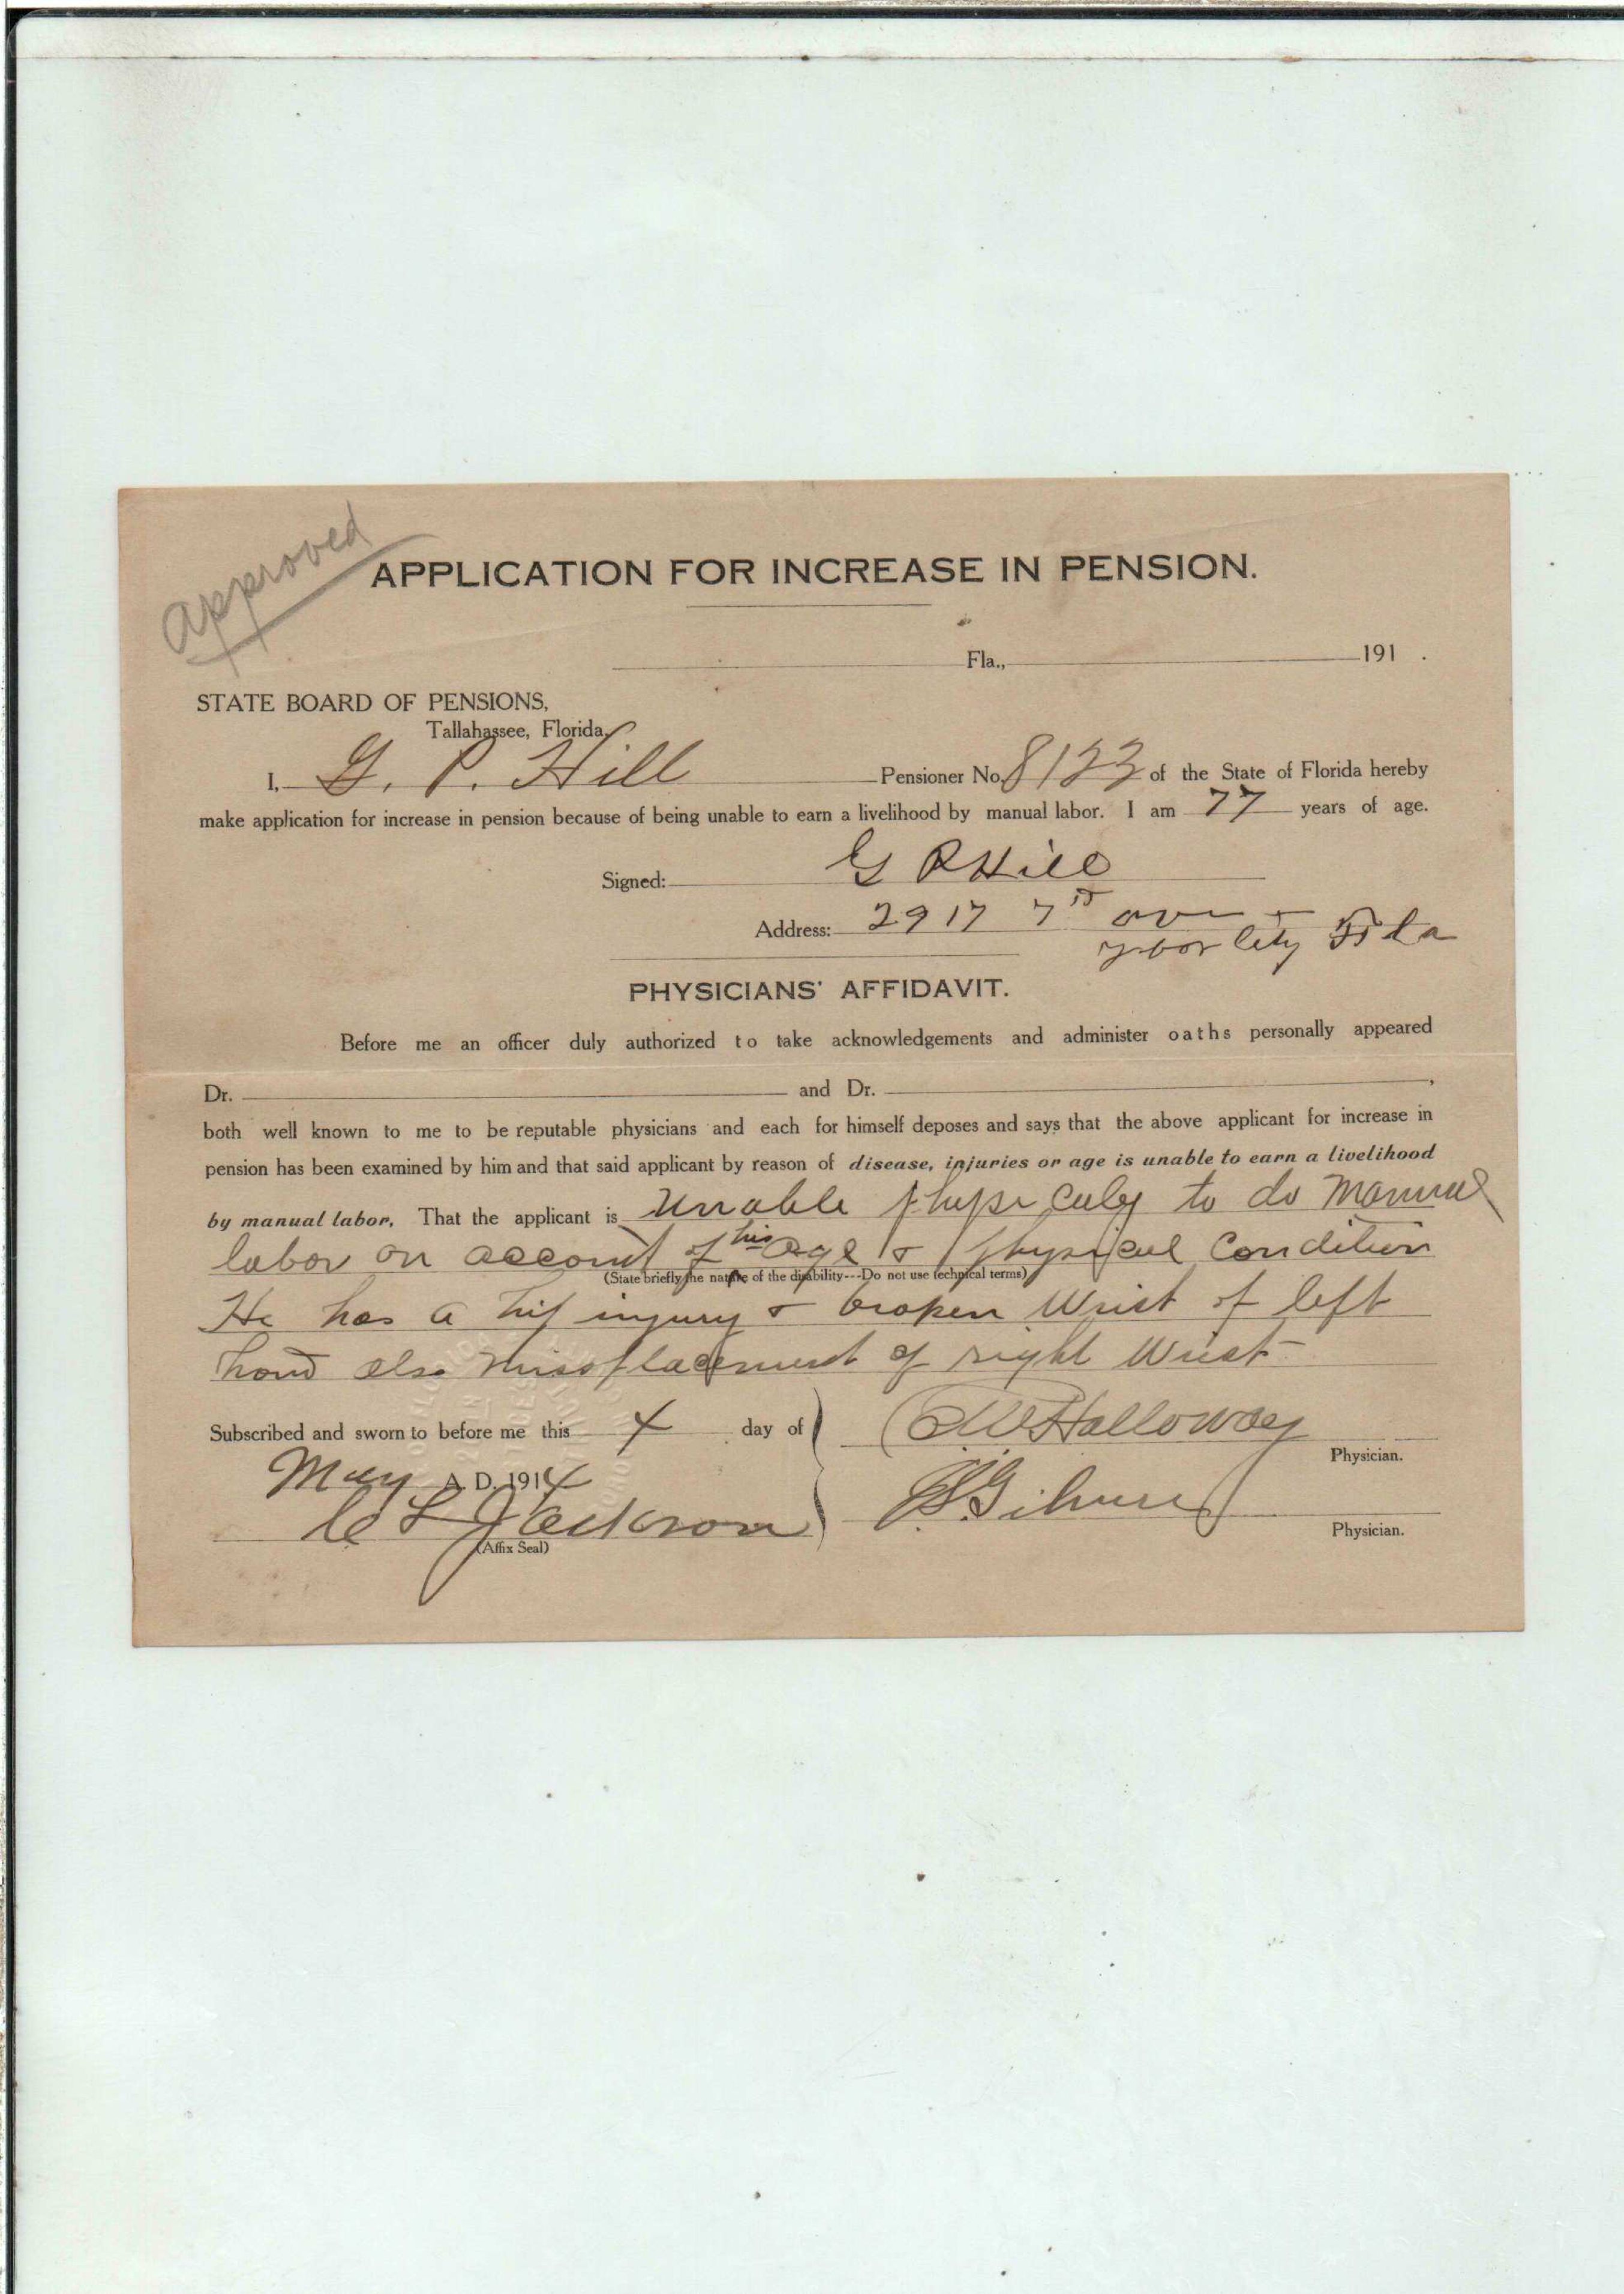 Approved
APPLICATION FOR INCREASE IN PENSION.
Fla., 191 .
STATE BOARD OF PENSIONS,
Tallahassee, Florida,
I, G. P. Hill Pensioner No. 8123 of the State of Florida hereby
make application for increase in pension because of being unable to earn a livelihood by manual labor. I am 77 years of age.
Signed: G P Hill
Address: 2917 7th ave
ybor City Fla
PHYSICIANS' AFFIDAVIT.
Before me an officer duly authorized to take acknowledgements and administer oaths personally appeared
Dr. and Dr. ,
both well known to me to be reputable physicians and each for himself deposes and says that the above applicant for increase in
pension has been examined by him and that said applicant by reason of disease, injuries or age is unable to earn a livelihood
by manual labor. That the applicant is unable physicaly to do manual
labor on account of his age & physical Condition
(State briefly the nature of the disability---Do not use technical terms)
He has a hip injury & broken Wrist of left
hand also missplacement of right Wrist
Subscribed and sworn to before me this 4 day of Holloway
Physician.
May A. D. 1914
C L Jackson
Physician.
(Affix Seal)